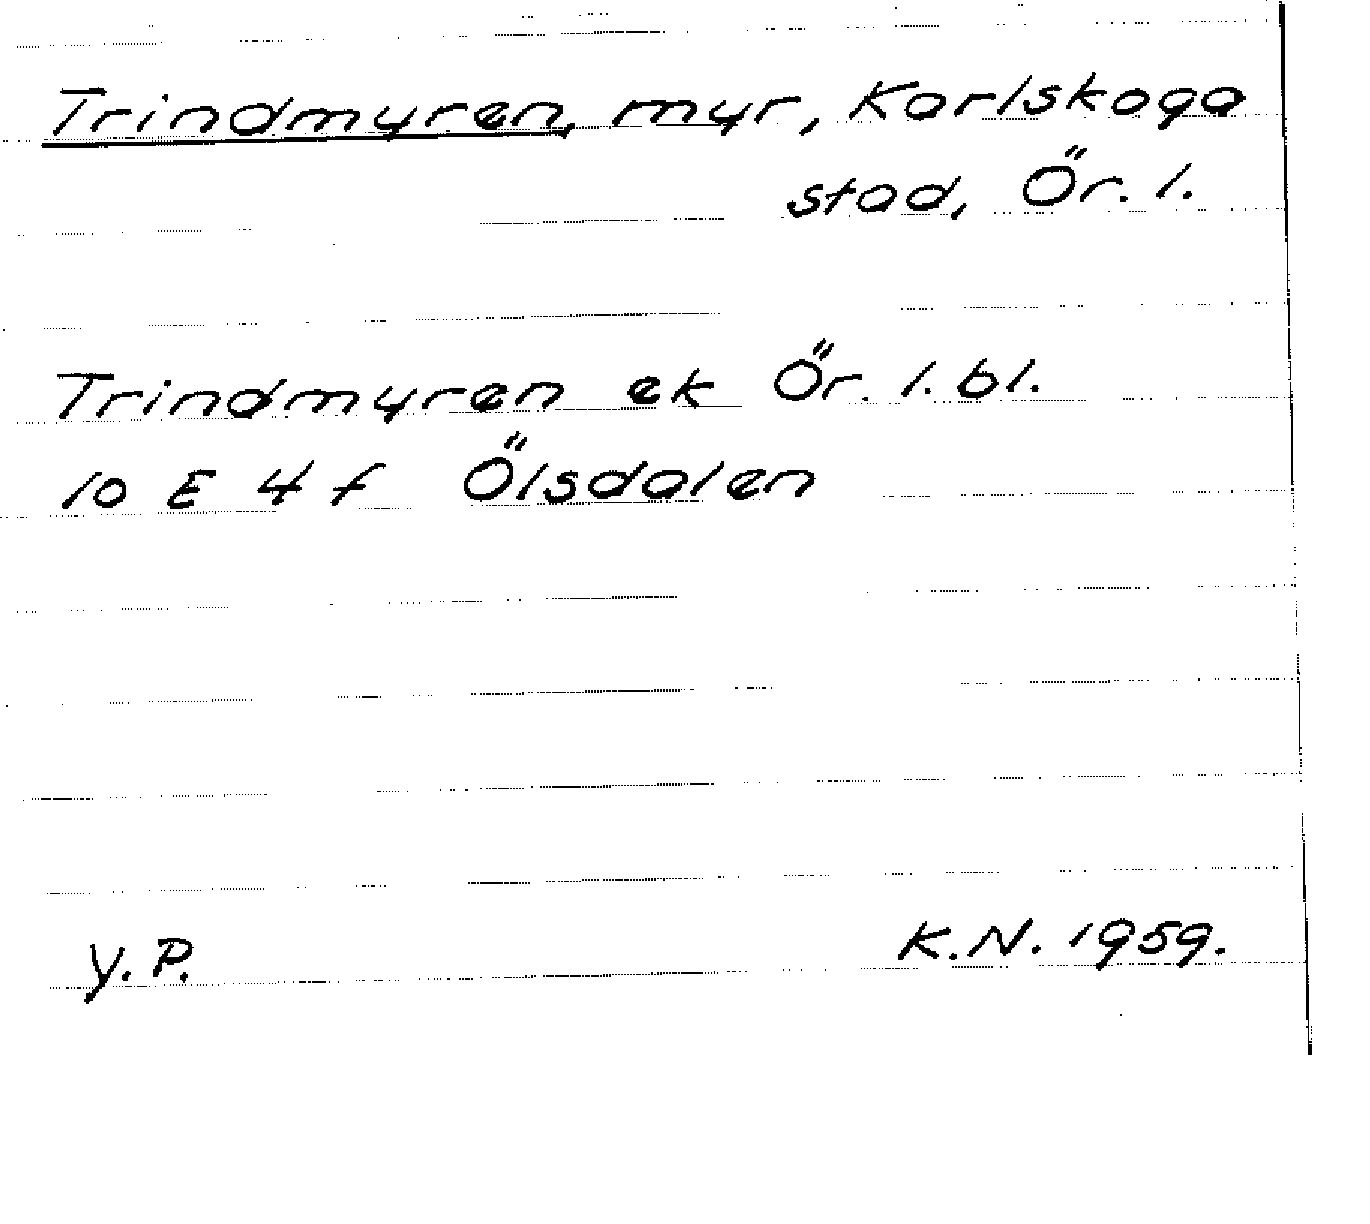 Trindmyren, myr, Karlskoga
stad, Ör. l.
Trindmyren ek Ör. l. bl.
10 E 4 f Ölsdalen
Y. P.
K. N. 1959.